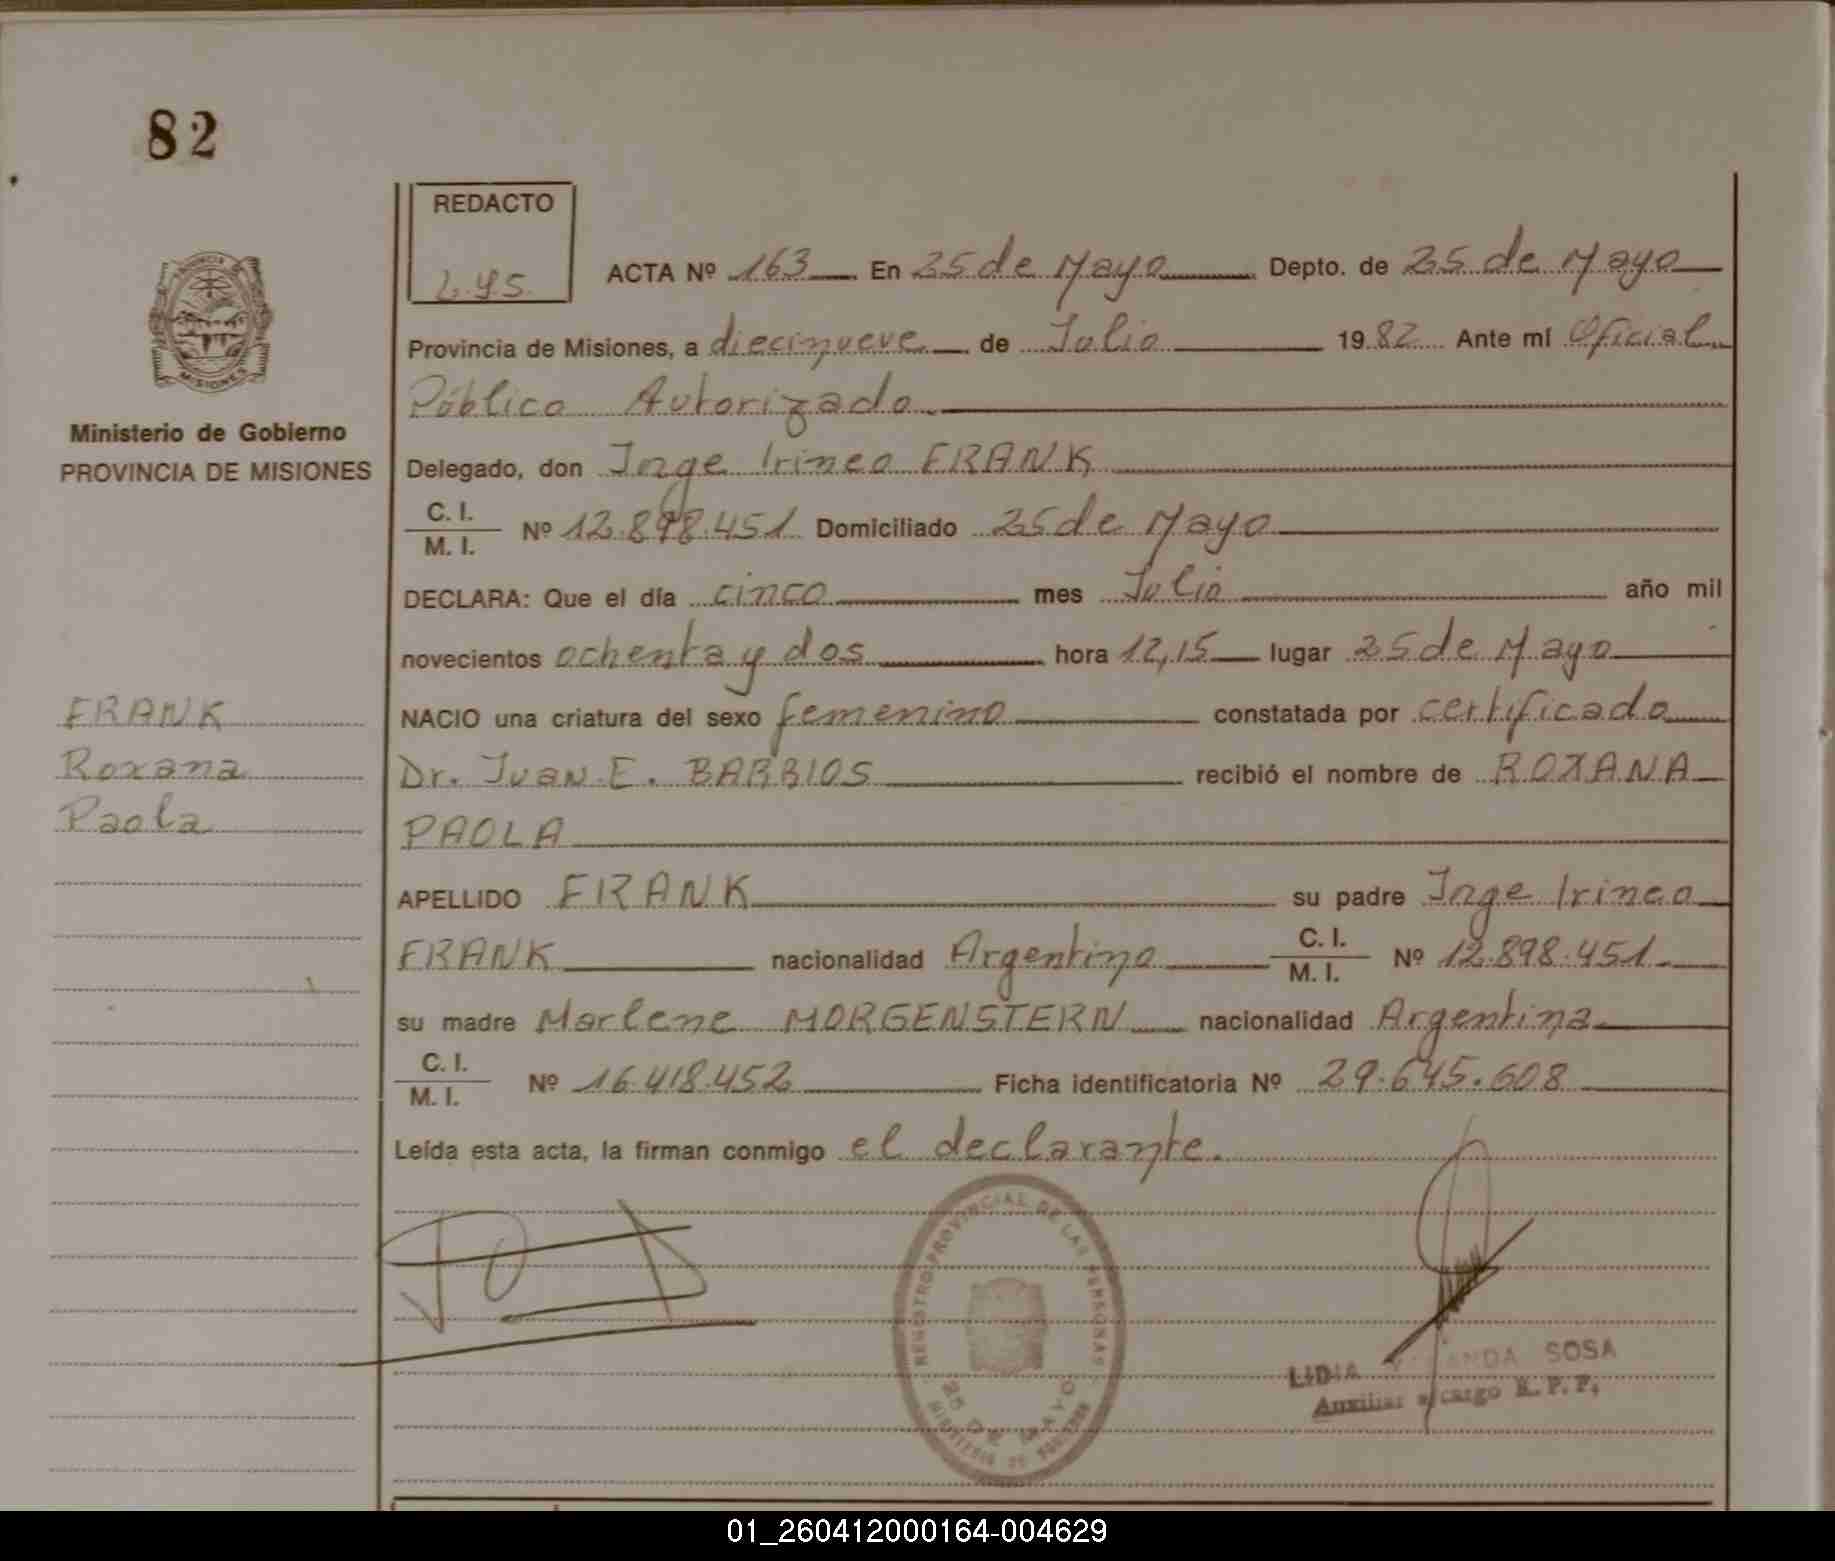 82
REDACTO
L.Y.S.
ACTA Nº 163 En 25 de Mayo Depto. de 25 de Mayo
Provincia de Misiones, a diecinueve de Julio 1982 Ante mí Oficial
Público Autorizado
Ministerio de Gobierno
PROVINCIA DE MISIONES
Delegado, don Jorge Irineo FRANK
C. I.
M. I. Nº 12.898.451 Domiciliado 25 de Mayo
DECLARA: Que el día cinco mes Julio año mil
novecientos ochenta y dos hora 12,15 lugar 25 de Mayo
FRANK
Roxana
Paola
NACIO una criatura del sexo femenino constatada por certificado
Dr. Juan E. BARRIOS recibió el nombre de ROXANA
PAOLA
APELLIDO FRANK su padre Jorge Irineo
FRANK nacionalidad Argentino C. I. M. I. Nº 12.898.451
su madre Marlene MORGENSTERN nacionalidad Argentina
C. I.
M. I. Nº 16.418.452 Ficha identificatoria Nº 29.645.608
Leída esta acta, la firman conmigo el declarante.
REGISTRO PROVINCIAL DE LAS PERSONAS
25 DE MAYO
MINISTERIO DE GOBIERNO
LIDIA SOSA
Auxiliar a/cargo R. P. P.
PROVINCIA DE
MISIONES
01_260412000164-004629